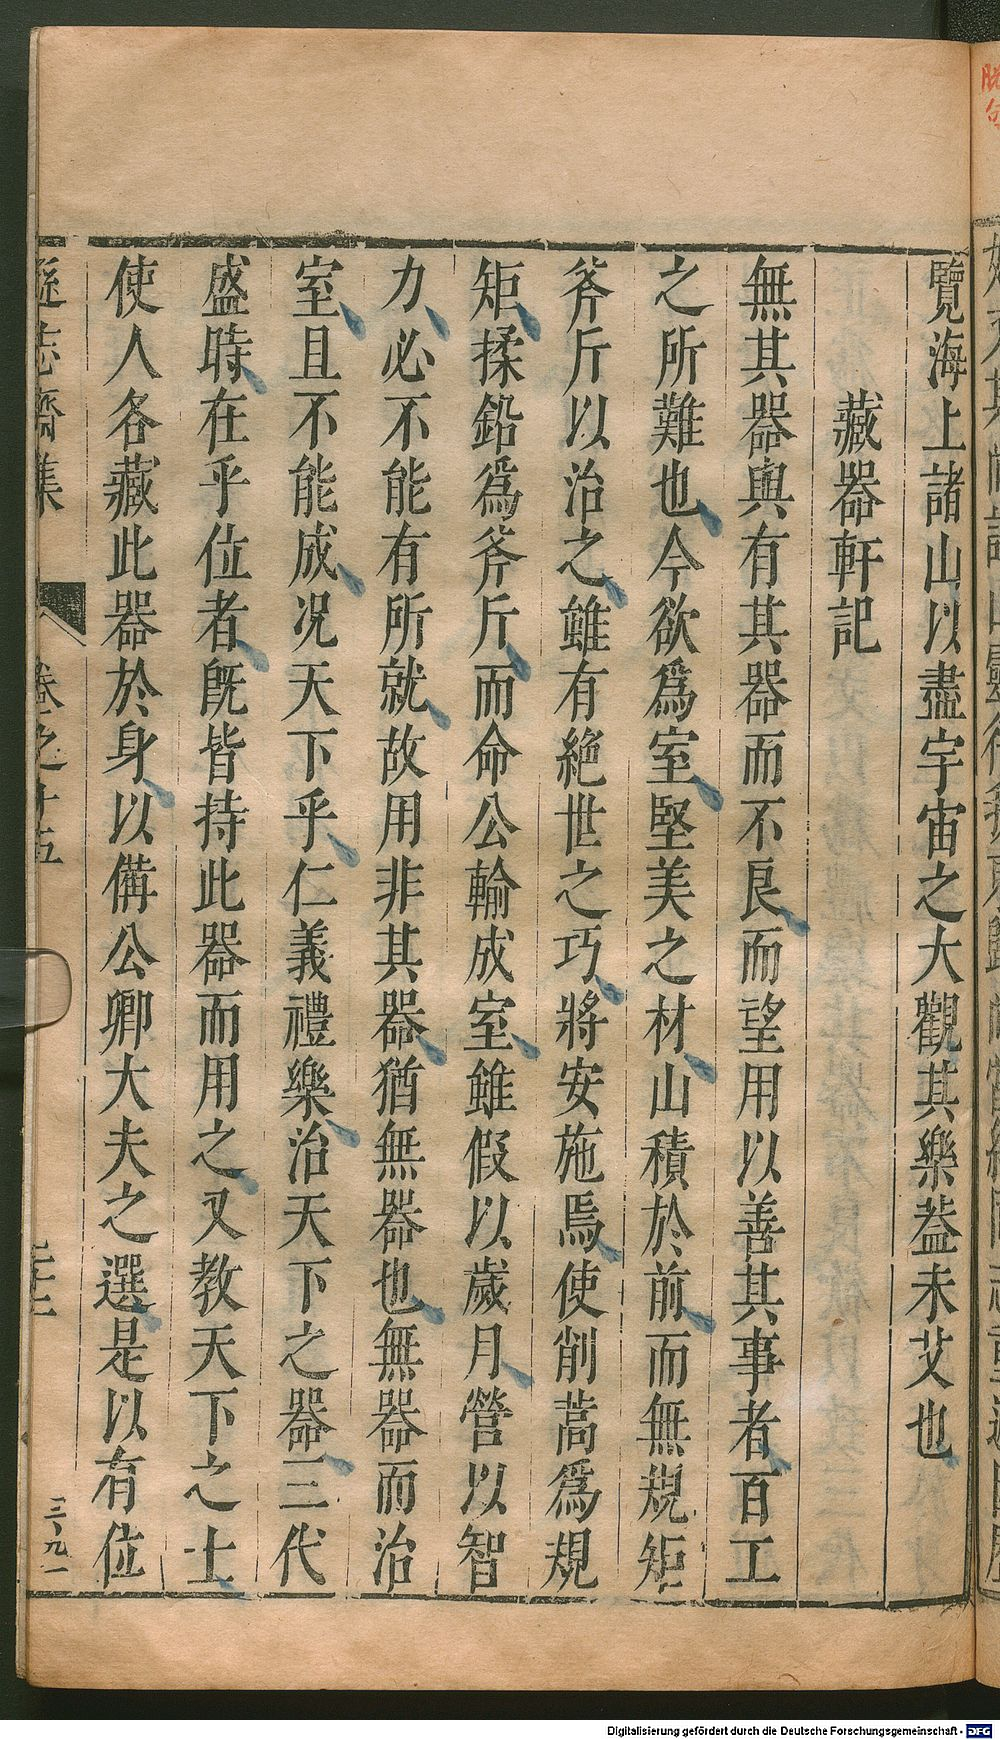 覽海上諸山以盡宇宙之大觀其樂葢未艾也
藏器軒記
無其器與有其器而不良而望用以善其事者百工
之所難也今欲爲室堅美之材山積於前而無規矩
斧斤以治之雖有絶世之巧將安施焉使削蒿爲規
矩揉鉛爲斧斤而命公輸成室雖假以歲月營以智
力必不能有所就故用非其器猶無器也無器而治
室且不能成况天下乎仁義禮樂治天下之器三代
盛時在乎位者旣皆持此器而用之又教天下之士
使人各藏此器於身以備公卿大夫之選是以有位
遜志齋集
卷之十五
三十二
三ノ九一
Digitalisierung gefördert durch die Deutsche Forschungsgemeinschaft - DFG